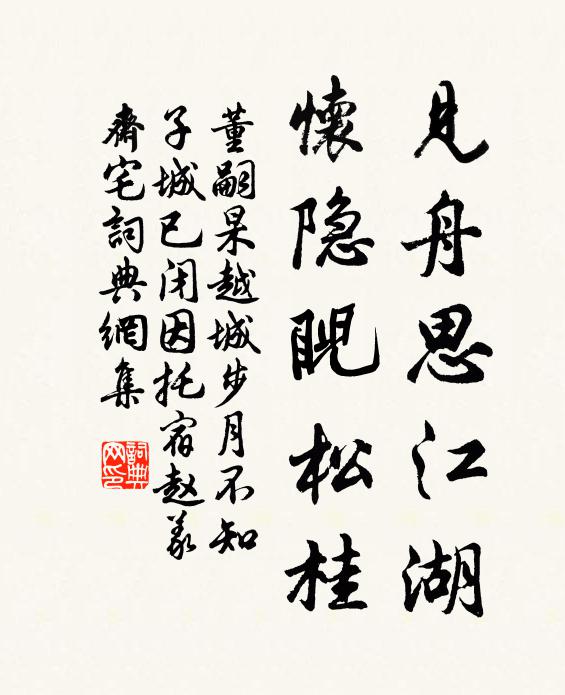 见舟思江湖
懷隐眖松桂
董嗣杲越城步月不知
子城已闭因托宿赵義
齋宅詞典網集
詞典
网印